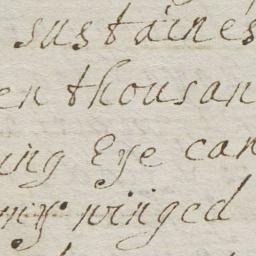 sustaines
en thousan
ing Eye can
my winged